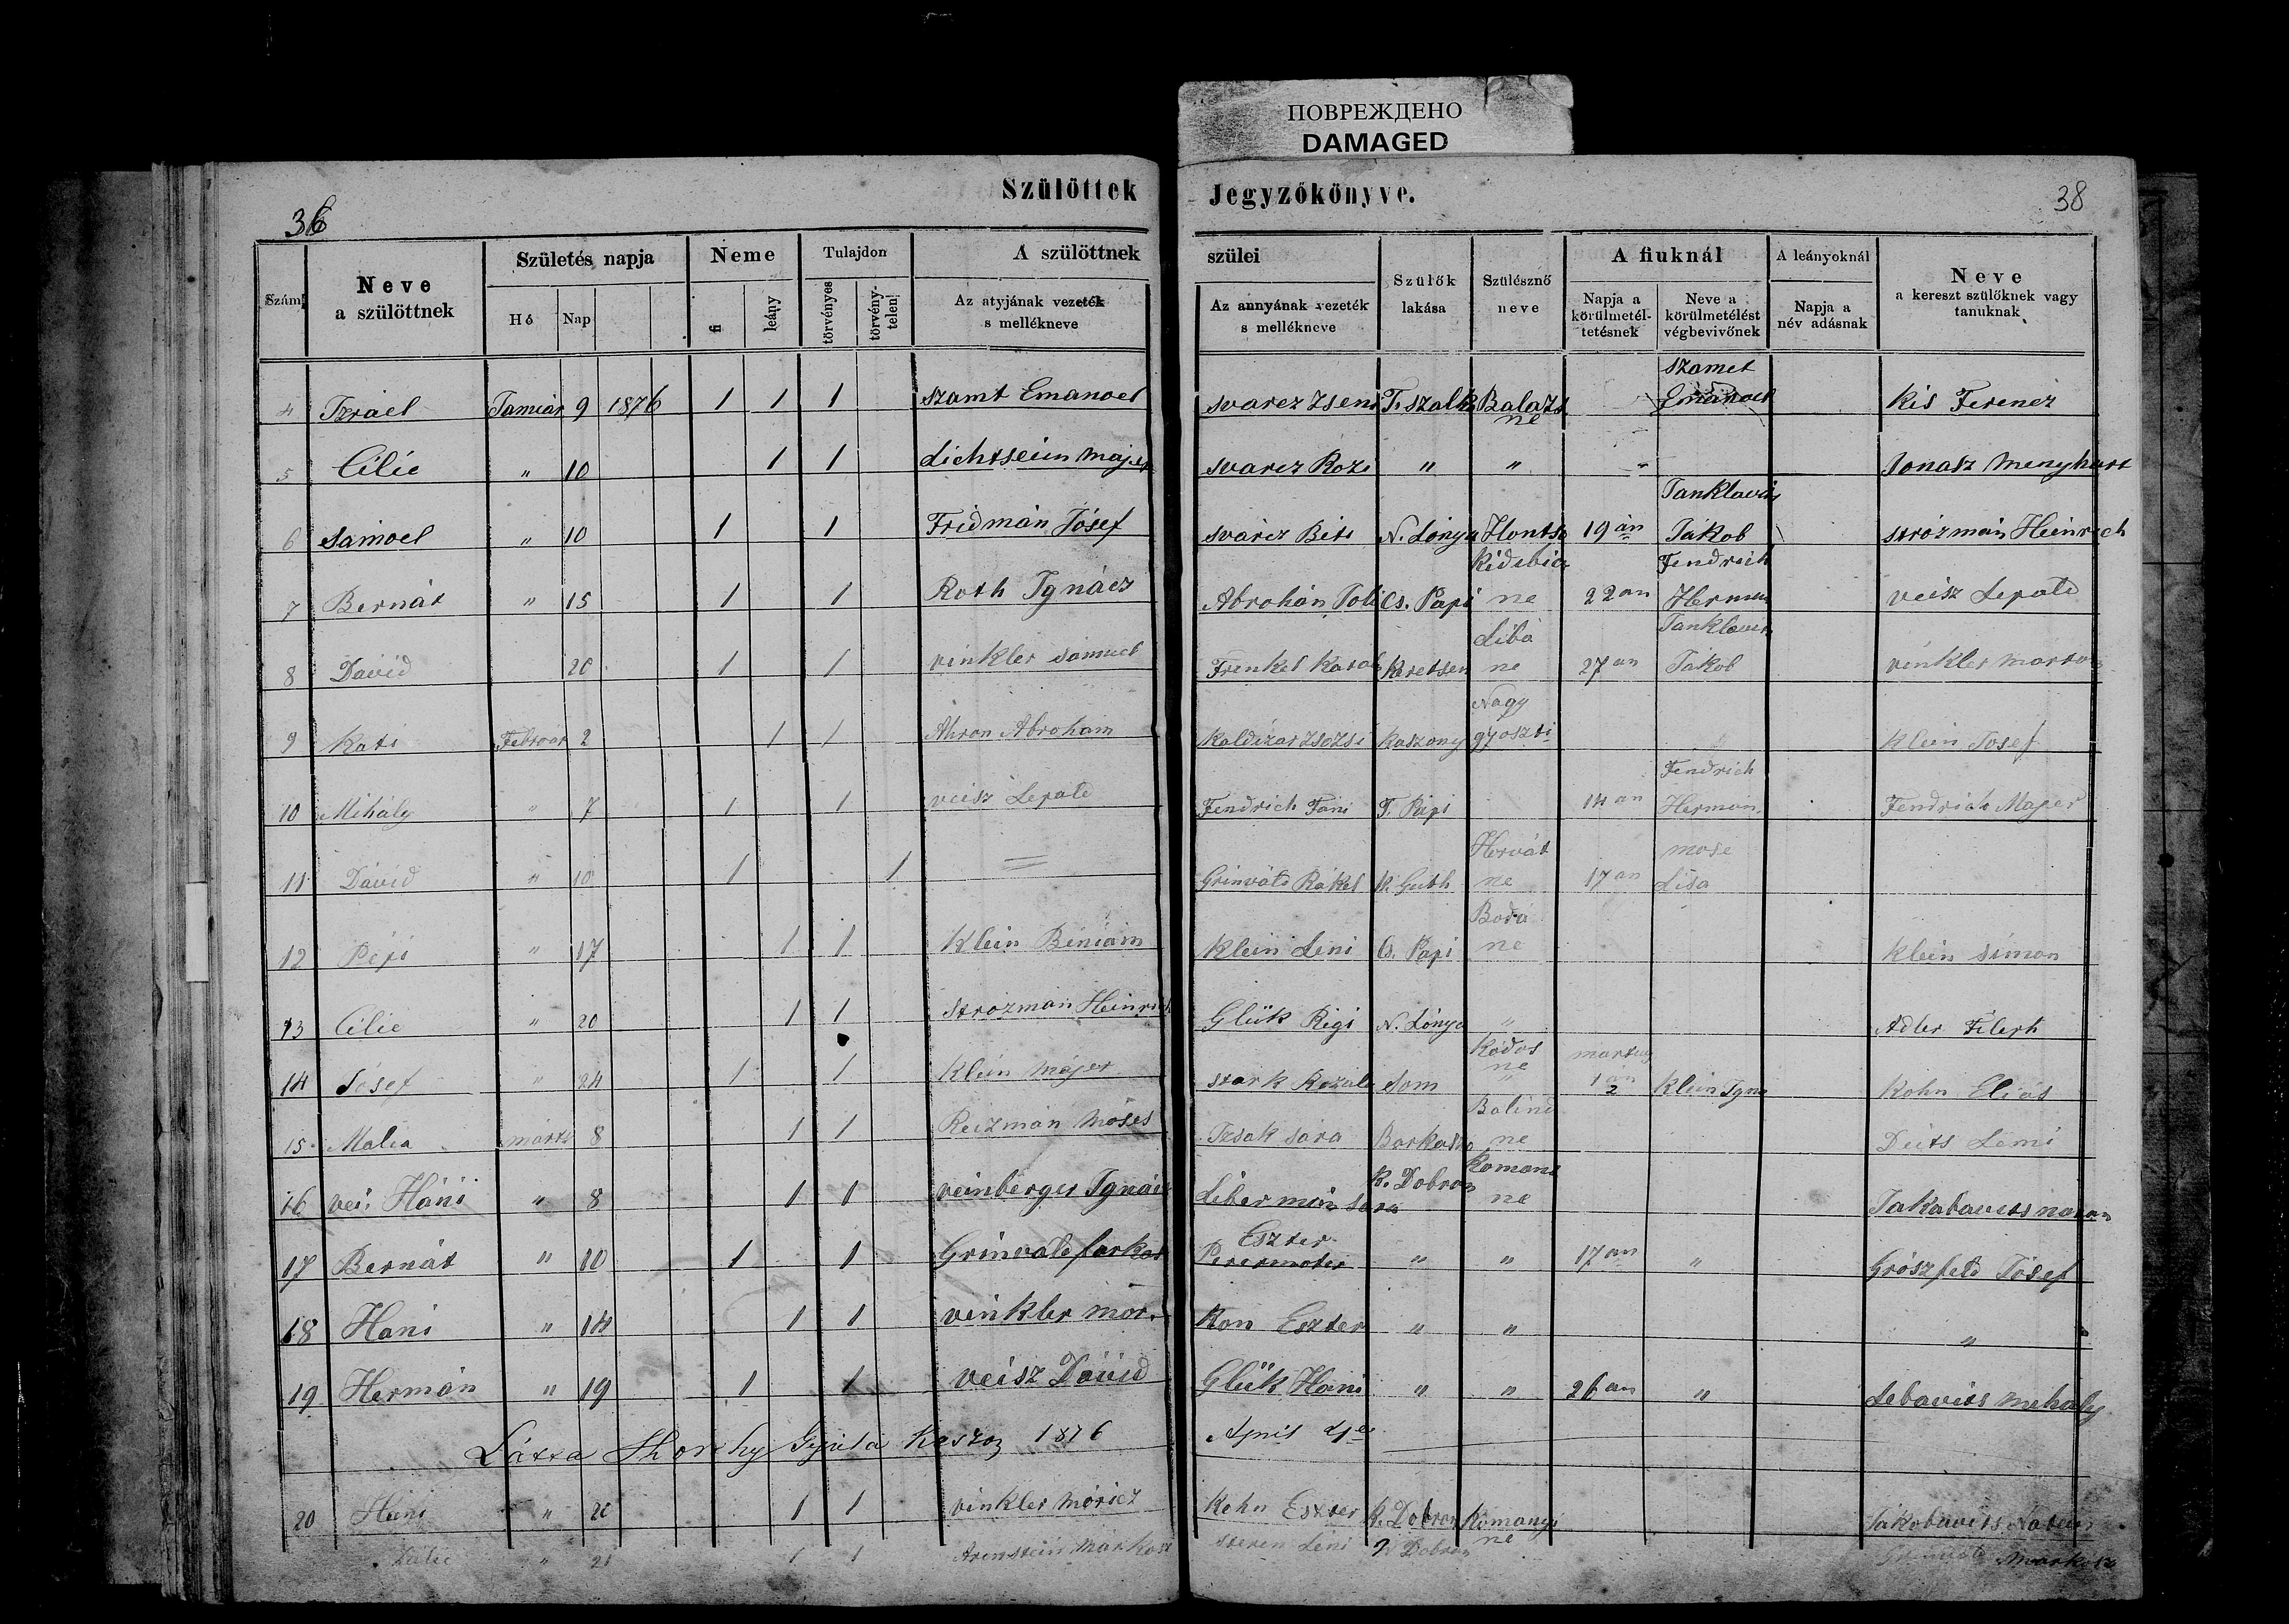 ПОВРЕЖДЕНО
DAMAGED
Szülöttek Jegyzőkönyve.
36
38
Szám
Neve a szülöttnek
Születés napja
Hó
Nap
Neme
fi
leány
Tulajdon
törvényes
törvény-telen
A szülöttnek szülei
Az atyjának vezeték s mellékneve
Az annyának vezeték s mellékneve
Szülők lakása
Szülésznő neve
A fiuknál
Napja a körülmetél-tetésnek
Neve a körülmetélést végbevivőnek
A leányoknál
Napja a név adásnak
Neve a kereszt szülőknek vagy tanuknak
4 Izrael Januiár 9 1876 1 1 1 szamt Emanoel svarcz Zseni T. szalka Balazs ne szamet Emanoel Kis Ferencz
5 Cilie " 10 1 1 Lichtstein majer svarcz Rozi " " " Jonasz Menyhart
6 Samoel " 10 1 1 Fridmán Jósef svárcz Beti N. Lónya Hontso 19 án Janklavits Jakob strozmán Heinrich
7 Bernát " 15 1 1 Roth Ignácz Abrohán Poli Cs. Papi ne 22 an Fendrich Herman veisz Lepold
8 Dávid 20 1 1 vinkler samuel Frenkel Karol Keretsen Libá ne 27 an Janklavits Jakob vinkler marton
9 Kati Februar 2 1 1 Ahron Abraham Zsozsi Kaszony Nagy gyoszti Klein Josef
10 Mihály " 7 1 1 veisz Lepold Fendrich Fáni T. Papi 14 an Fendrich Herman Fendrich Majer
11 Dávid " 10 1 1 = Grinváld Rákel K. Guth Horvát ne 17 an mose Lisa
12 Pepi " 17 1 1 Klein Beniam Klein Leni Cs. Papi Bodá ne Klein simon
13 Cilie " 20 1 1 strozman Heinrich Glük Regi N. Lónya " Adler Fileph
14 Jósef " 24 1 1 Klein májer stark Rozali Som Kádos ne " martius 1 án 2 Klein Ign Kohn Eliás
15 Malia márts 8 1 1 Reizmán Móses Izsak sára Barkaszo Balind ne Deits Lemi
16 vei. Háni " 8 1 1 veinberger Ignácz Libermán Sara K. Dobron Komani ne Jakabavits natan
17 Bernát " 10 1 1 Grinvald farkas Eszter " " 17 an " Grószfeld Jósef
18 Hani " 14 1 1 vinkler mor. Kon Eszter " " "
19 Hermán " 19 1 1 veisz Dávid Glük Hani " " 26 an " Lebavits mihaly
Látta Horthy Gyula 1876 Apris
20 Háni " 20 1 1 vinkler móricz Kohn Eszter K. Dobron Komanyi ne Jakobavits Natan
" 21 1 1 Arenstein Markosz steren Leni N Dobron Markosz